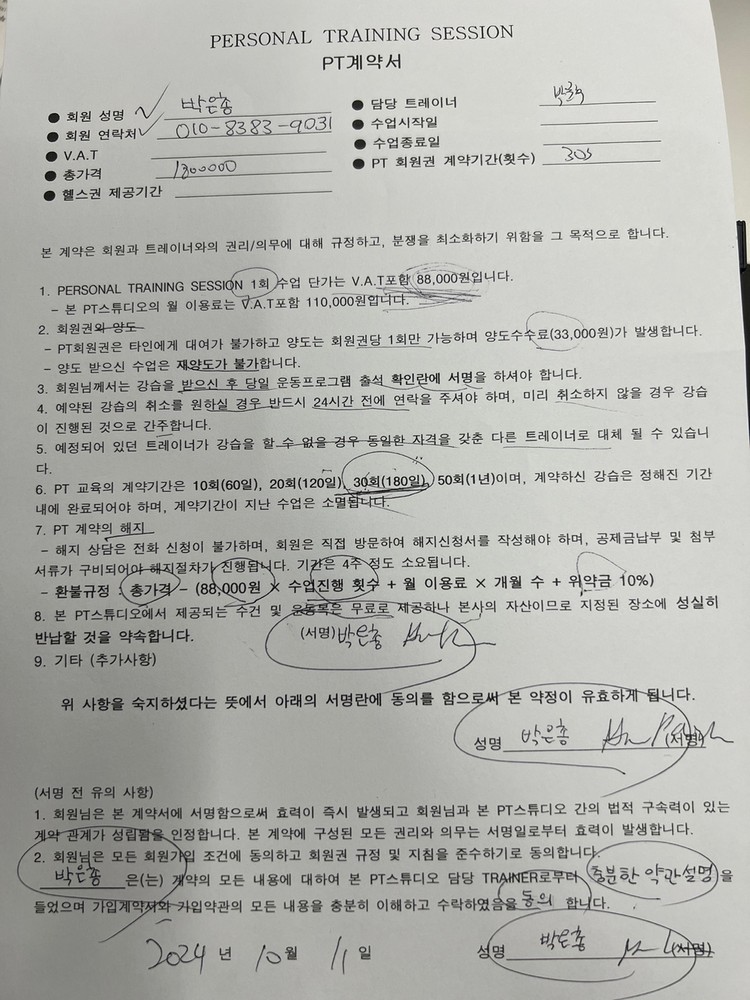 PERSONAL TRAINING SESSION
PT계약서
● 회원 성명 박은총
● 회원 연락처 010-8383-9031
● V.A.T
● 총가격 1800000
● 헬스권 제공기간
● 담당 트레이너
● 수업시작일
● 수업종료일
● PT 회원권 계약기간(횟수) 30
본 계약은 회원과 트레이너와의 권리/의무에 대해 규정하고, 분쟁을 최소화하기 위함을 그 목적으로 합니다.
1. PERSONAL TRAINING SESSION 1회 수업 단가는 V.A.T포함 88,000원입니다.
- 본 PT스튜디오의 월 이용료는 V.A.T포함 110,000원입니다.
2. 회원권와 양도
- PT회원권은 타인에게 대여가 불가하고 양도는 회원권당 1회만 가능하며 양도수수료(33,000원)가 발생합니다.
- 양도 받으신 수업은 재양도가 불가합니다.
3. 회원님께서는 강습을 받으신 후 당일 운동프로그램 출석 확인란에 서명을 하셔야 합니다.
4. 예약된 강습의 취소를 원하실 경우 반드시 24시간 전에 연락을 주셔야 하며, 미리 취소하지 않을 경우 강습
이 진행된 것으로 간주합니다.
5. 예정되어 있던 트레이너가 강습을 할 수 없을 경우 동일한 자격을 갖춘 다른 트레이너로 대체 될 수 있습니
다.
6. PT 교육의 계약기간은 10회(60일), 20회(120일), 30회(180일), 50회(1년)이며, 계약하신 강습은 정해진 기간
내에 완료되어야 하며, 계약기간이 지난 수업은 소멸됩니다.
7. PT 계약의 해지
- 해지 상담은 전화 신청이 불가하며, 회원은 직접 방문하여 해지신청서를 작성해야 하며, 공제금납부 및 첨부
서류가 구비되어야 해지절차가 진행됩니다. 기간은 4주 정도 소요됩니다.
- 환불규정 : 총가격 - (88,000원 × 수업진행 횟수 + 월 이용료 × 개월 수 + 위약금 10%)
8. 본 PT스튜디오에서 제공되는 수건 및 운동복은 무료로 제공하나 본사의 자산이므로 지정된 장소에 성실히
반납할 것을 약속합니다. (서명) 박은총
9. 기타 (추가사항)
위 사항을 숙지하셨다는 뜻에서 아래의 서명란에 동의를 함으로써 본 약정이 유효하게 됩니다.
성명 박은총 (서명)
(서명 전 유의 사항)
1. 회원님은 본 계약서에 서명함으로써 효력이 즉시 발생되고 회원님과 본 PT스튜디오 간의 법적 구속력이 있는
계약 관계가 성립됨을 인정합니다. 본 계약에 구성된 모든 권리와 의무는 서명일로부터 효력이 발생합니다.
2. 회원님은 모든 회원가입 조건에 동의하고 회원권 규정 및 지침을 준수하기로 동의합니다.
박은총 은(는) 계약의 모든 내용에 대하여 본 PT스튜디오 담당 TRAINER로부터 충분한 약관설명 을
들었으며 가입계약서와 가입약관의 모든 내용을 충분히 이해하고 수락하였음을 동의 합니다.
2024 년 10 월 11 일
성명 박은총 (서명)